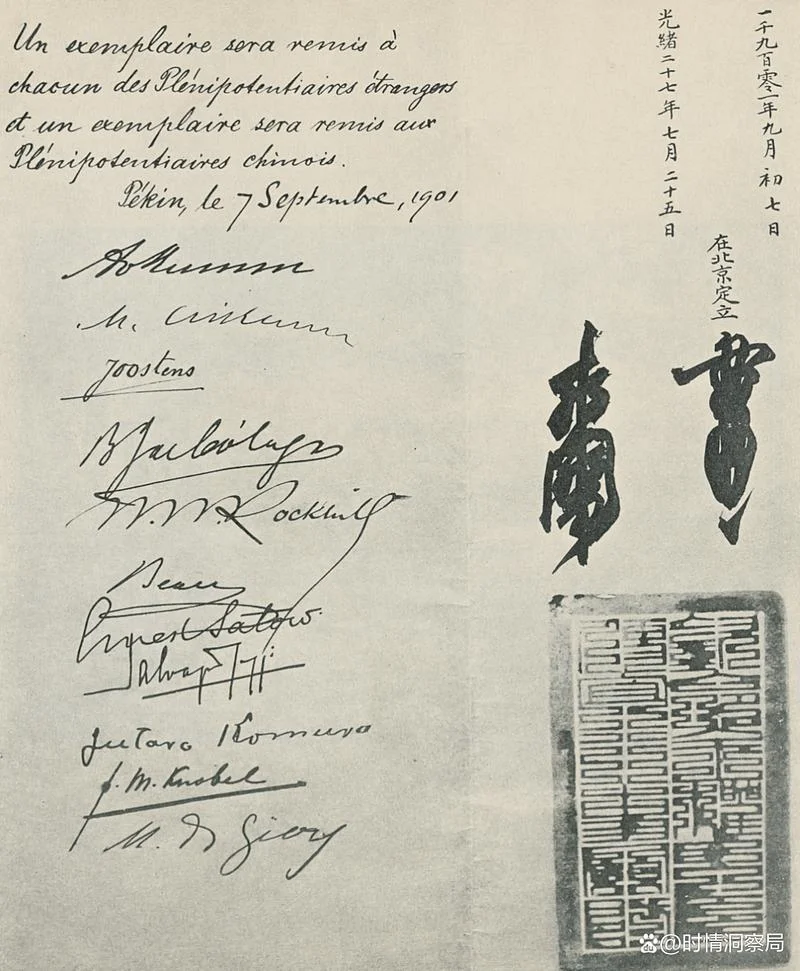 Un exemplaire sera remis à
chacun des Plénipotentiaires étrangers
et un exemplaire sera remis aux
Plénipotentiaires chinois.
Pékin, le 7 Septembre, 1901
Joostens
W. W. Rockhill
Beau
Ernest Satow
Salvago Raggi
Jutaro Komura
F. M. Knobel
M. de Giers
一千九百零一年九月初七日
光緒二十七年七月二十五日
在北京定立
@时情洞察局